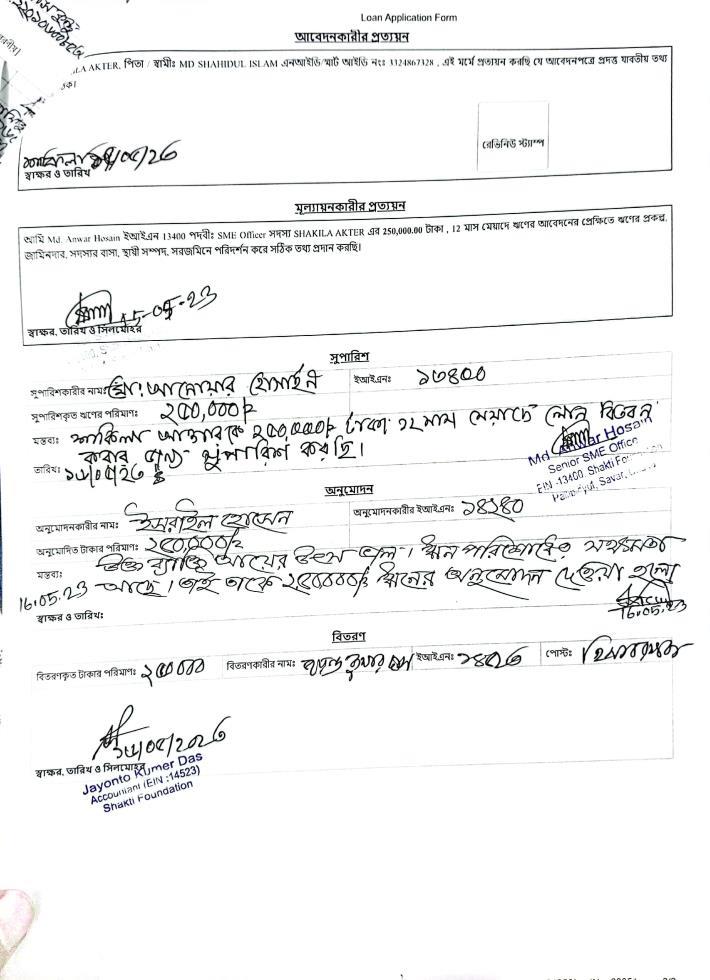 Loan Application Form
আবেদনকারীর প্রত্যয়ন
AKTER, পিতা / স্বামীঃ MD SHAHIDUL ISLAM এনআইডি/স্মার্ট আইডি নংঃ 3324867328 , এই মর্মে প্রত্যয়ন করছি যে আবেদনপত্রে প্রদত্ত যাবতীয় তথ্য
রেভিনিউ স্ট্যাম্প
স্বাক্ষর ও তারিখ
মূল্যায়নকারীর প্রত্যয়ন
আমি Md. Anwar Hosain ইআইএন 13400 পদবীঃ SME Officer সদস্য SHAKILA AKTER এর 250,000.00 টাকা , 12 মাস মেয়াদে ঋণের আবেদনের প্রেক্ষিতে ঋণের প্রকল্প,
জামিনদার, সদস্যর বাসা, স্থায়ী সম্পদ, সরজমিনে পরিদর্শন করে সঠিক তথ্য প্রদান করছি।
15-05-23
স্বাক্ষর, তারিখ ও সিলমোহর
সুপারিশ
সুপারিশকারীর নামঃ মোঃ আনোয়ার হোসাইন ইআইএনঃ ১৩৪০০
সুপারিশকৃত ঋণের পরিমাণঃ ২৫০,০০০/=
মন্তব্যঃ শাকিলা আক্তারকে ২৫০,০০০/= টাকা ১২ মাস মেয়াদে লোন বিতরন
করার জন্য সুপারিশ করছি।
তারিখঃ
Md. Anwar Hosain
Senior SME Office
EIN -13400, Shakti
Savar,
অনুমোদন
অনুমোদনকারীর নামঃ ইসরাইল হোসেন অনুমোদনকারীর ইআইএনঃ ১৪২৪০
অনুমোদিত টাকার পরিমাণঃ ২৫০,০০০/=
মন্তব্যঃ উক্ত ব্যক্তির আয়ের উৎস ভাল। ঋন পরিশোধের সক্ষমতা
আছে। তাই তাকে ২৫০০০০/= ঋনের অনুমোদন দেওয়া হলো
16.05.23
স্বাক্ষর ও তারিখঃ
16.05.23
বিতরণ
বিতরণকৃত টাকার পরিমাণঃ ২৫০০০০ বিতরণকারীর নামঃ জয়ন্ত কুমার দাস ইআইএনঃ ১৪৫২৩ পোস্টঃ হিসাবরক্ষক
স্বাক্ষর, তারিখ ও সিলমোহর
Jayonto Kumer Das
Accountant (EIN :14523)
Shakti Foundation